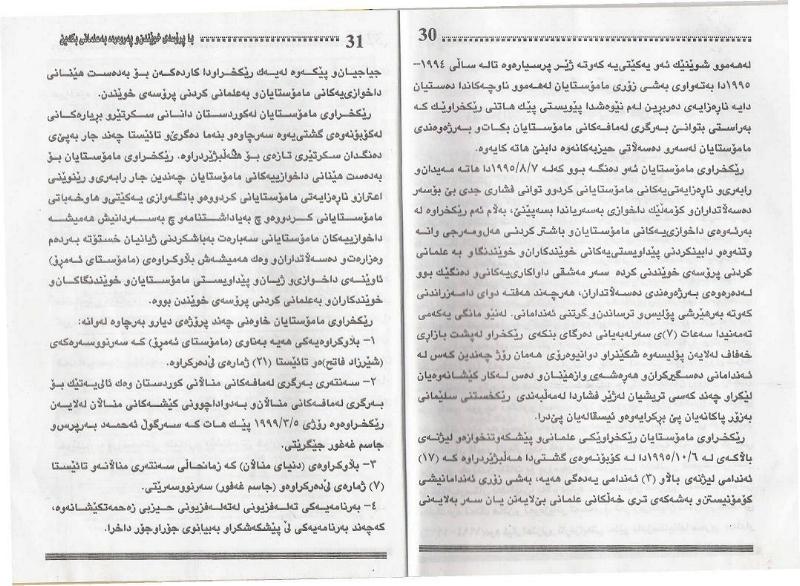 30
لەهەموو شوێنێك ئەو یەکێتی یە کەوتە ژێر پرسیارەوە تالە ساڵی ١٩٩٤-
١٩٩٥دا بەتەواوی بەشی زۆری مامۆستایان لەهەموو ناوچەکاندا دەستیان
دایە ناڕەزایەی دەربڕین لەم نێوەشدا پێویستی پێك هاتنی رێکخراوێك کە
بەراستی بتوانێ بەرگری لەمافەکانی مامۆستایان بکات و بەرژەوەندی
مامۆستایان لەسەرو دەسەڵاتی حیزبەکانەوە دابنێ هاتە کایەوە.
رێکخراوی مامۆستایان ئەو دەنگە بوو کەلە ١٩٩٥/٨/٧دا هاتە مەیدان و
رابەری و ناڕەزایەتی یەکانی مامۆستایانی کردوو توانی فشاری جدی بێ بۆسەر
دەسەڵاتداران و کۆمەڵێك داخوازی بەسەریاندا بسەپێنێ، بەڵام ئەم رێکخراوە لە
بەرئەوەی داخوازی یەکانی مامۆستایان و باشتر کردنی هەل ومەرجی وانە
وتنەوەو دابینکردنی پێداویستی یەکانی خوێندکاران و خوێندنگاو بە علمانی
کردنی پرۆسەی خوێندنی کردە سەر مەشقی داواکاری یەکانی و دەنگێك بوو
لەدەرەوەی بەرژەوەندی دەسەڵاتداران، هەرچەند هەفتە دوای دامەزراندنی
کەوتە بەرهێرشی پۆلیس و ترساندن و گرتنی ئەندامانی. لەنێو مانگی یەکەمی
تەمەنیدا سەعات (٧)ی سەرلەبەیانی دەرگای بنکەی رێکخراو لەپشت بازاری
خەفاف لەلایەن پۆلیسەوە شکێنراو دوانیوەرۆی هەمان رۆژ چەندین کەس لە
ئەندامانی دەسگیرکران و هەرەشەی وازهێنان و دەس لەکار کێشانەوەیان
لێکراو چەند کەسی تریشیان لەژێر فشاردا لەمەڵبەندی رێکخستنی سلێمانی
بەزۆر پاکانەیان پێ بڕکرایەوەو ئیسقالەیان پێ درا.
رێکخراوی مامۆستایان رێکخراوێکی علمانی و پێشکەوتنخوازەو لیژنەی
باڵاکەی لە ١٩٩٥/١٠/٦دا لە کۆبوونەوەی گشتی دا هەڵبژێردراوە کە (١٧)
ئەندامی لیژنەی باڵاو (٣) ئەندامی یەدەگی هەیە، بەشی زۆری ئەندامانیشی
کۆمۆنیستن و بەشەکەی تری خەڵکانی علمانی بێ لایەنن یان سەر بەلایەنی
با پرۆسەی خوێندن و پەروەردە بەعلمانی بکەین
31
جیاجیان و پێکەوە لەیەك رێکخراودا کاردەکەن بۆ بەدەست هێنانی
داخوازی یەکانی مامۆستایان و بەعلمانی کردنی پرۆسەی خوێندن.
رێکخراوی مامۆستایان لەکوردستان دانانی سکرتێرو بڕیارەکانی
لەکۆبوونەوەی گشتی یەوە سەرچاوەو بنەما دەگرێ و تائێستا چەند جار بەپێی
دەنگدان سکرتێری تازەی بۆ هەڵبژێردراوە. رێکخراوی مامۆستایان بۆ
بەدەست هێنانی داخوازییەکانی مامۆستایان چەندین جار رابەری و رێنوێنی
اعتراز و ناڕەزایەتی مامۆستایانی کردووەو بانگەوازی یەکێتی و هاوخەباتی
مامۆستایانی کردووەو چ بەیاداشتنامەو چ بەسەردانیش هەمیشە
داخوازییەکان مامۆستایانی سەبارەت بەباشکردنی ژیانیان خستۆتە بەردەم
وەزارەت و دەسەڵاتداران و وەك هەمیشەش بڵاوکراوەی (مامۆستای ئەمڕۆ)
ئاوێنەی داخوازی و ژیان و پێداویستی مامۆستایان و خوێندنگاکان و
خوێندکاران و بەعلمانی کردنی پرۆسەی خوێندن بووە.
رێکخراوی مامۆستایان خاوەنی چەند پرۆژەی دیارو بەرچاوە لەوانە:
١- بڵاوکراوەیەکی هەیە بەناوی (مامۆستای ئەمڕۆ) کە سەرنووسەرەکەی
(شێرزاد فاتح)ەو تائێستا (٢١) ژمارەی لێ دەرکراوە.
٢- سەنتەری بەرگری لەمافەکانی مناڵانی کوردستان وەك ئالیەتێك بۆ
بەرگری لەمافەکانی مناڵان و بەدواداچوونی کێشەکانی مناڵان لەلایەن
رێکخراوەوە رۆژی ١٩٩٩/٣/٥ پێك هات کە سەرگوڵ ئەحمەد بەرپرس و
جاسم غەفور جێگرێتی.
٣- بڵاوکراوەی (دنیای مناڵان) کە زمانحاڵی سەنتەری مناڵانەو تائێستا
(٧) ژمارەی لێ دەرکراوەو (جاسم غەفور) سەرنووسەرێتی.
٤- بەرنامەیەکی تەلەفزیونی لەتەلەفزیونی حیزبی زەحمەتکێشانەوە،
کەچەند بەرنامەیەکی لێ پێشکەشکراو بەبیانوی جۆراوجۆر داخرا.